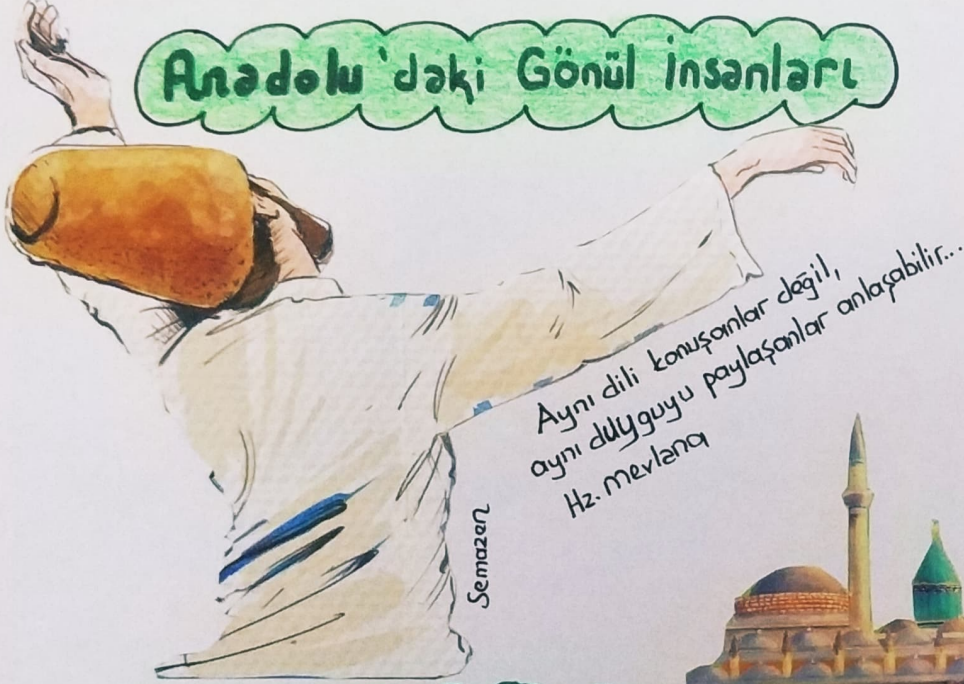 Anadolu'daki Gönül İnsanları
Aynı dili konuşanlar değil,
aynı duyguyu paylaşanlar anlaşabilir...
Hz. Mevlana
Semazen